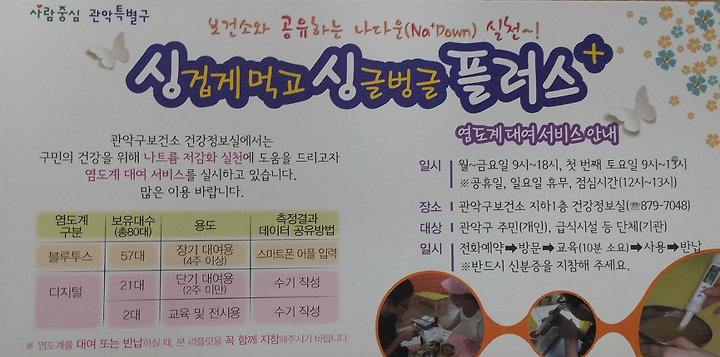 사람중심 관악특별구
보건소와 공유하는 나다운(Na⁺Down) 실천~!
싱겁게 먹고 싱글벙글 플러스+
관악구보건소 건강정보실에서는
구민의 건강을 위해 나트륨 저감화 실천에 도움을 드리고자
염도계 대여 서비스를 실시하고 있습니다.
많은 이용 바랍니다.
염도계 구분 보유대수 (총80대) 용도 측정결과 데이터 공유방법
블루투스 57대 장기 대여용 (4주 이상) 스마트폰 어플 입력
디지털 21대 단기 대여용 (2주 미만) 수기 작성
2대 교육 및 전시용 수기 작성
※ 염도계를 대여 또는 반납하실 때, 본 리플릿을 꼭 함께 지참해주시기 바랍니다.
염도계 대여 서비스 안내
일시 월~금요일 9시~18시, 첫 번째 토요일 9시~13시
※공휴일, 일요일 휴무, 점심시간(12시~13시)
장소 관악구보건소 지하1층 건강정보실(☏879-7048)
대상 관악구 주민(개인), 급식시설 등 단체(기관)
일시 전화예약➡방문➡교육(10분 소요)➡사용➡반납
※반드시 신분증을 지참해 주세요.